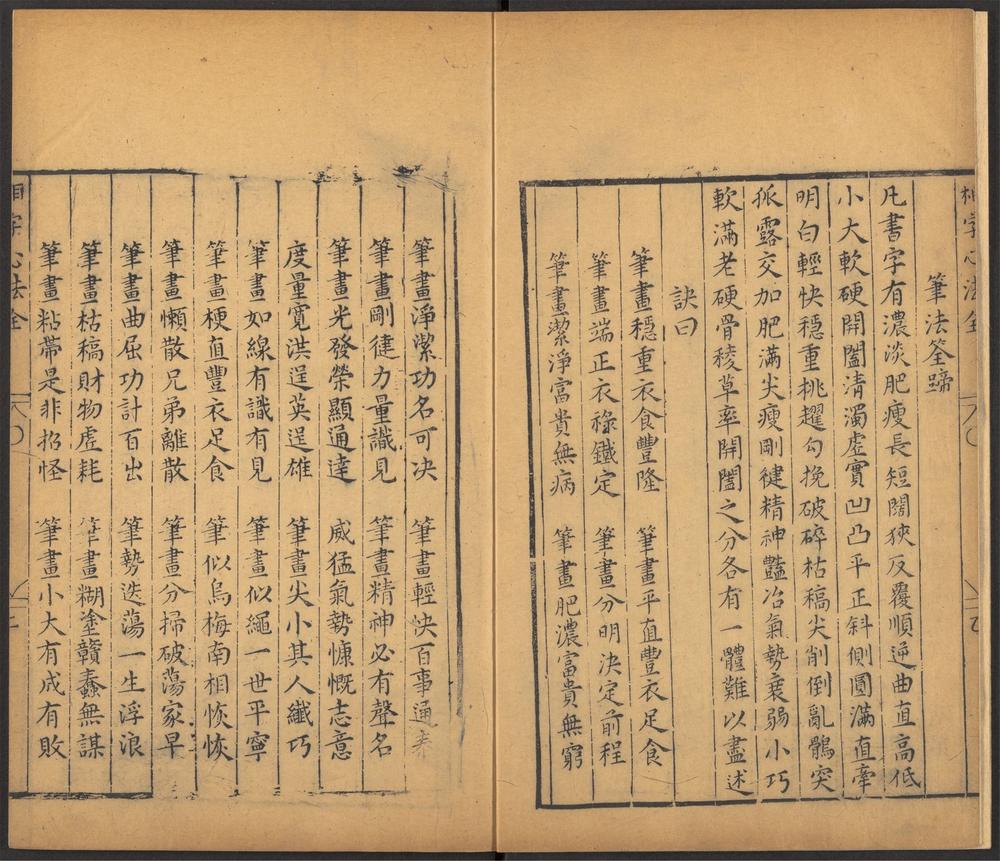 相字心法全
筆法筌蹄
凡書字有濃淡肥瘦長短闊狹反覆順逆曲直高低
小大軟硬開闔清濁虛實凹凸平正斜側圓滿直牽
明白輕快穩重挑趯勾挽破碎枯稿尖削倒亂鶻突
孤露交加肥滿尖瘦剛健精神豔冶氣勢衰弱小巧
軟滿老硬骨稜草率開闔之分各有一體難以盡述
訣曰
筆畫穩重衣食豐隆 筆畫平直豐衣足食
筆畫端正衣祿鐵定 筆畫分明決定前程
筆畫潔淨富貴無病 筆畫肥濃富貴無窮
筆畫淨潔功名可决 筆畫輕快百事通
筆畫剛健力量識見 筆畫精神必有聲名
筆畫光發榮顯通達 威猛氣勢慷慨志意
度量寬洪逞英逞雄 筆畫尖小其人纖巧
筆畫如線有識有見 筆畫似繩一世平寧
筆畫梗直豐衣足食 筆似烏梅南相恢恢
筆畫懶散兄弟離散 筆畫分掃破蕩家早
筆畫曲屈功計百出 筆勢迭蕩一生浮浪
筆畫枯稿財物虛耗 筆畫糊塗贛蠢無謀
筆畫粘帶是非招怪 筆畫小大有成有敗
相字心法全